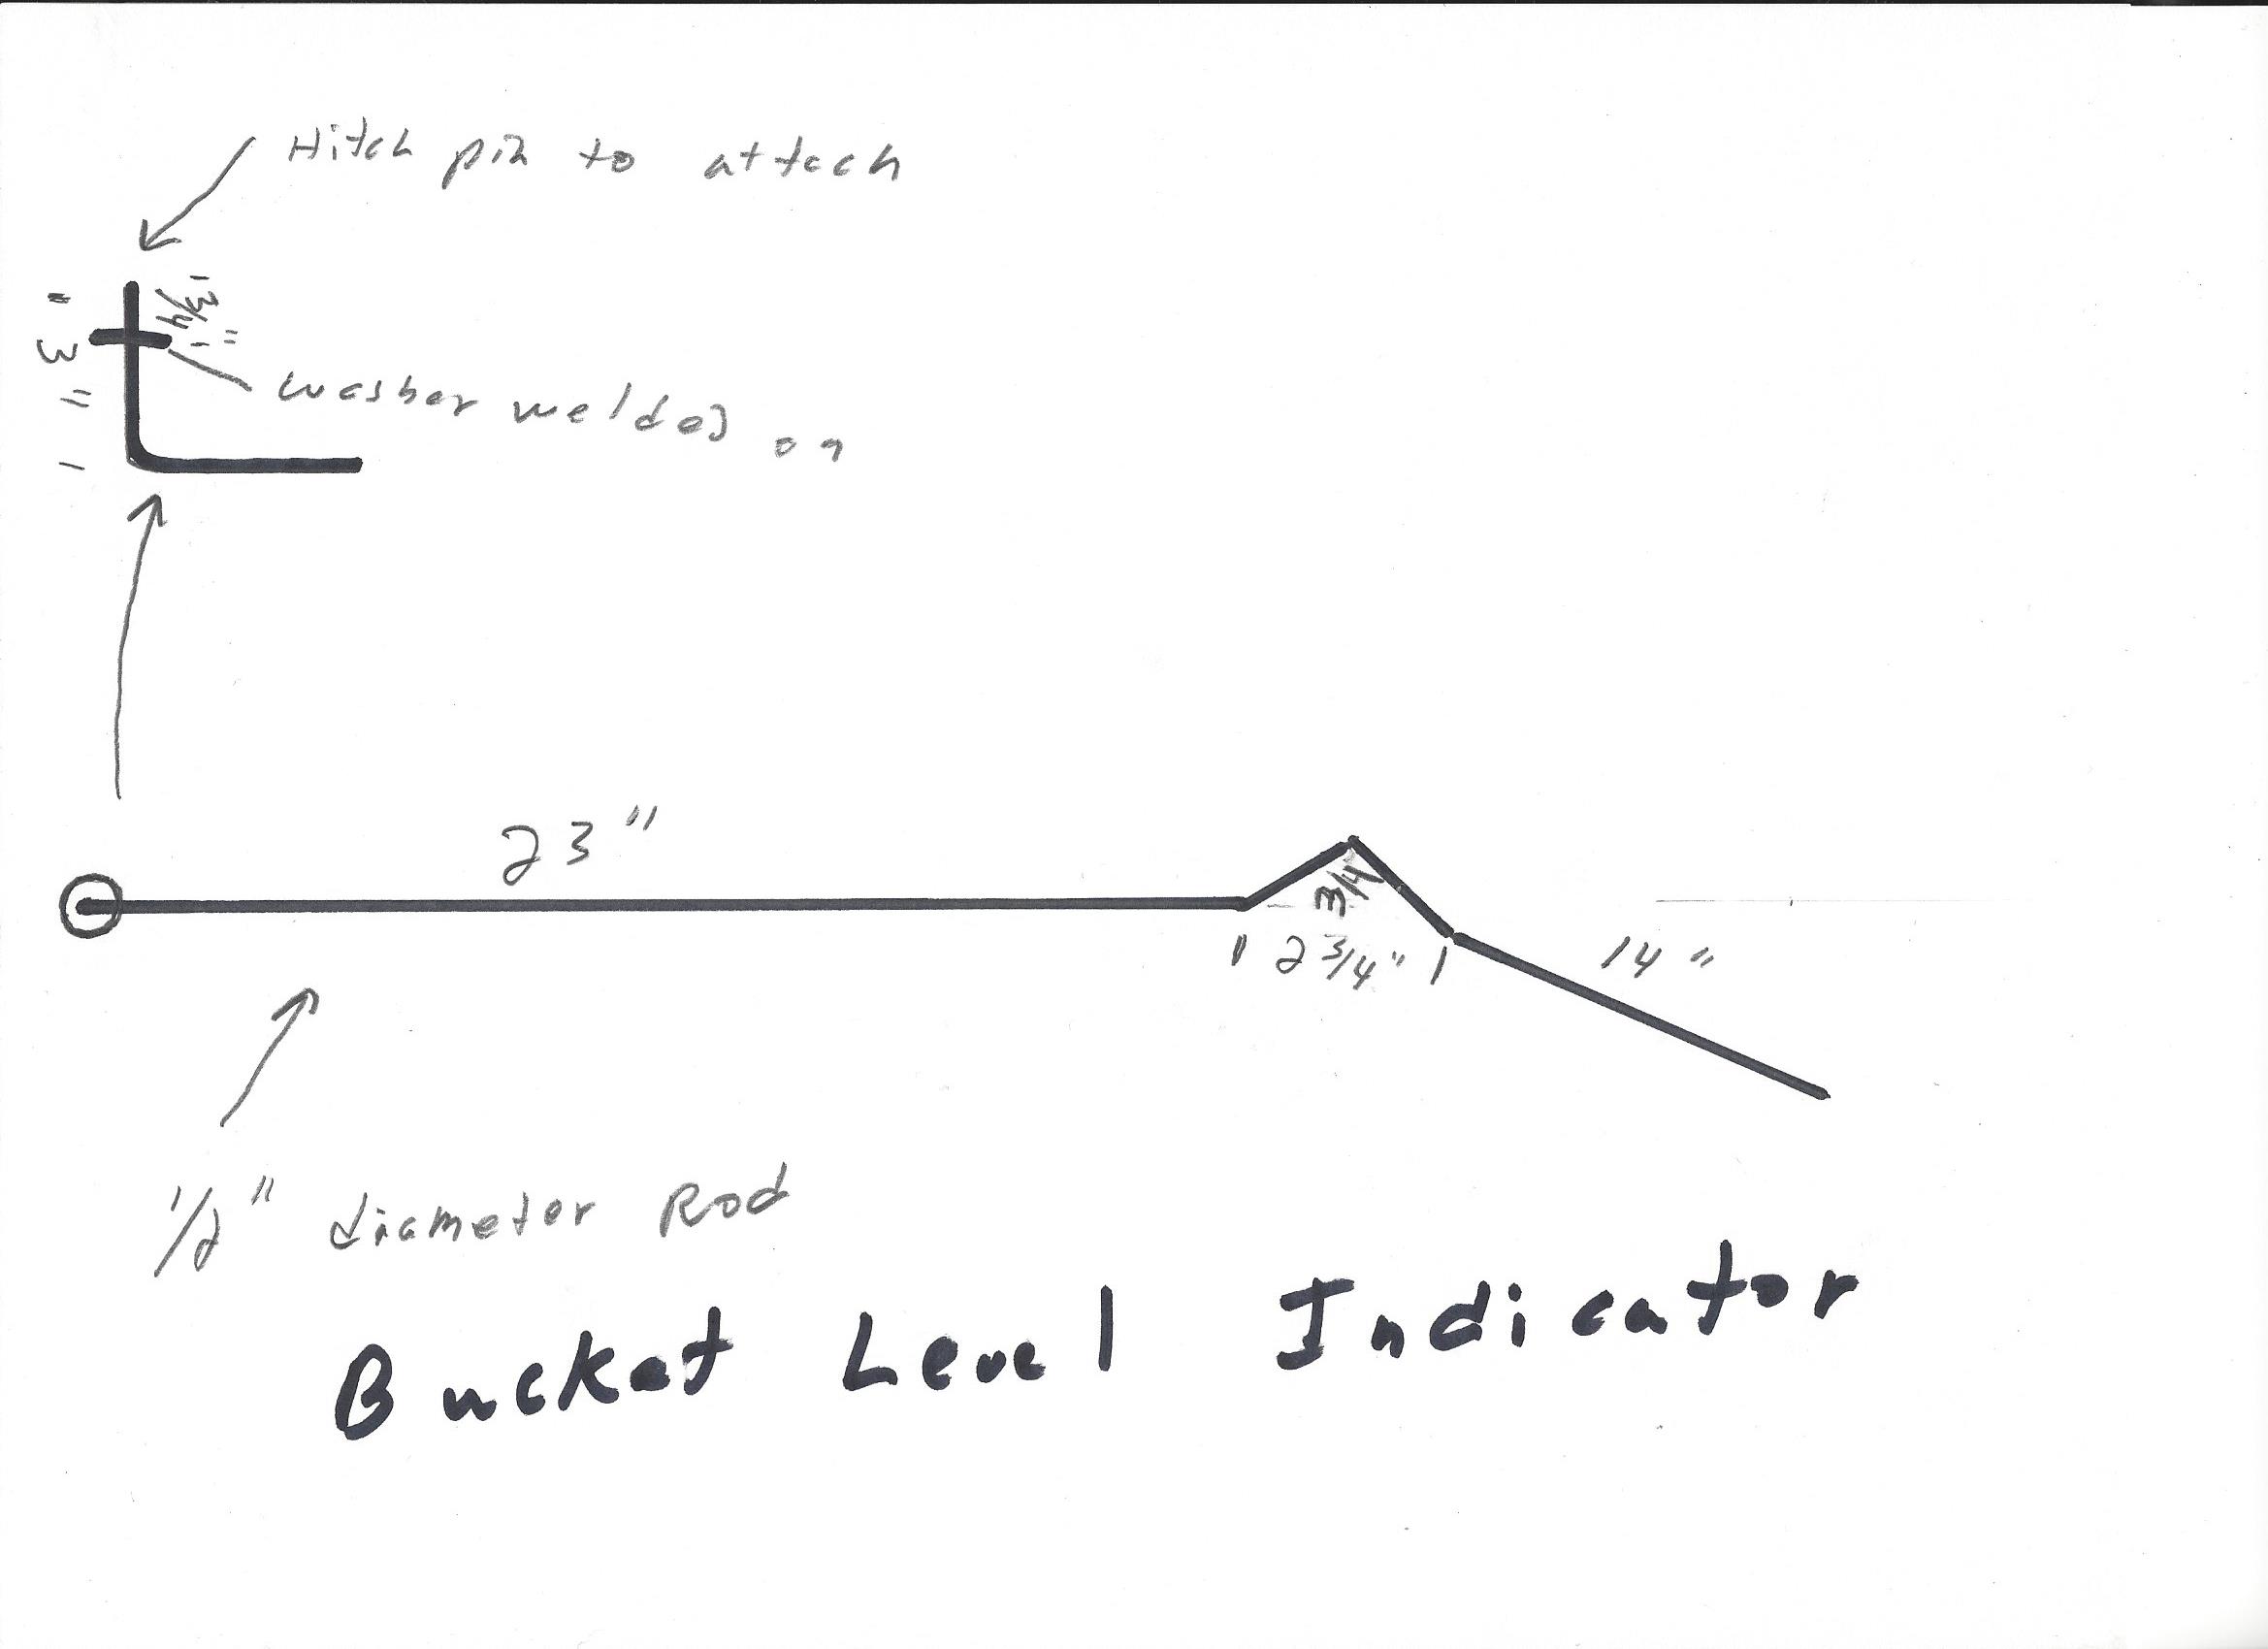 Hitch pin to attach
1 3/4"
3"
washer welded on
23"
3/4
2 3/4"
14"
1/2" diameter Rod
Bucket Level Indicator